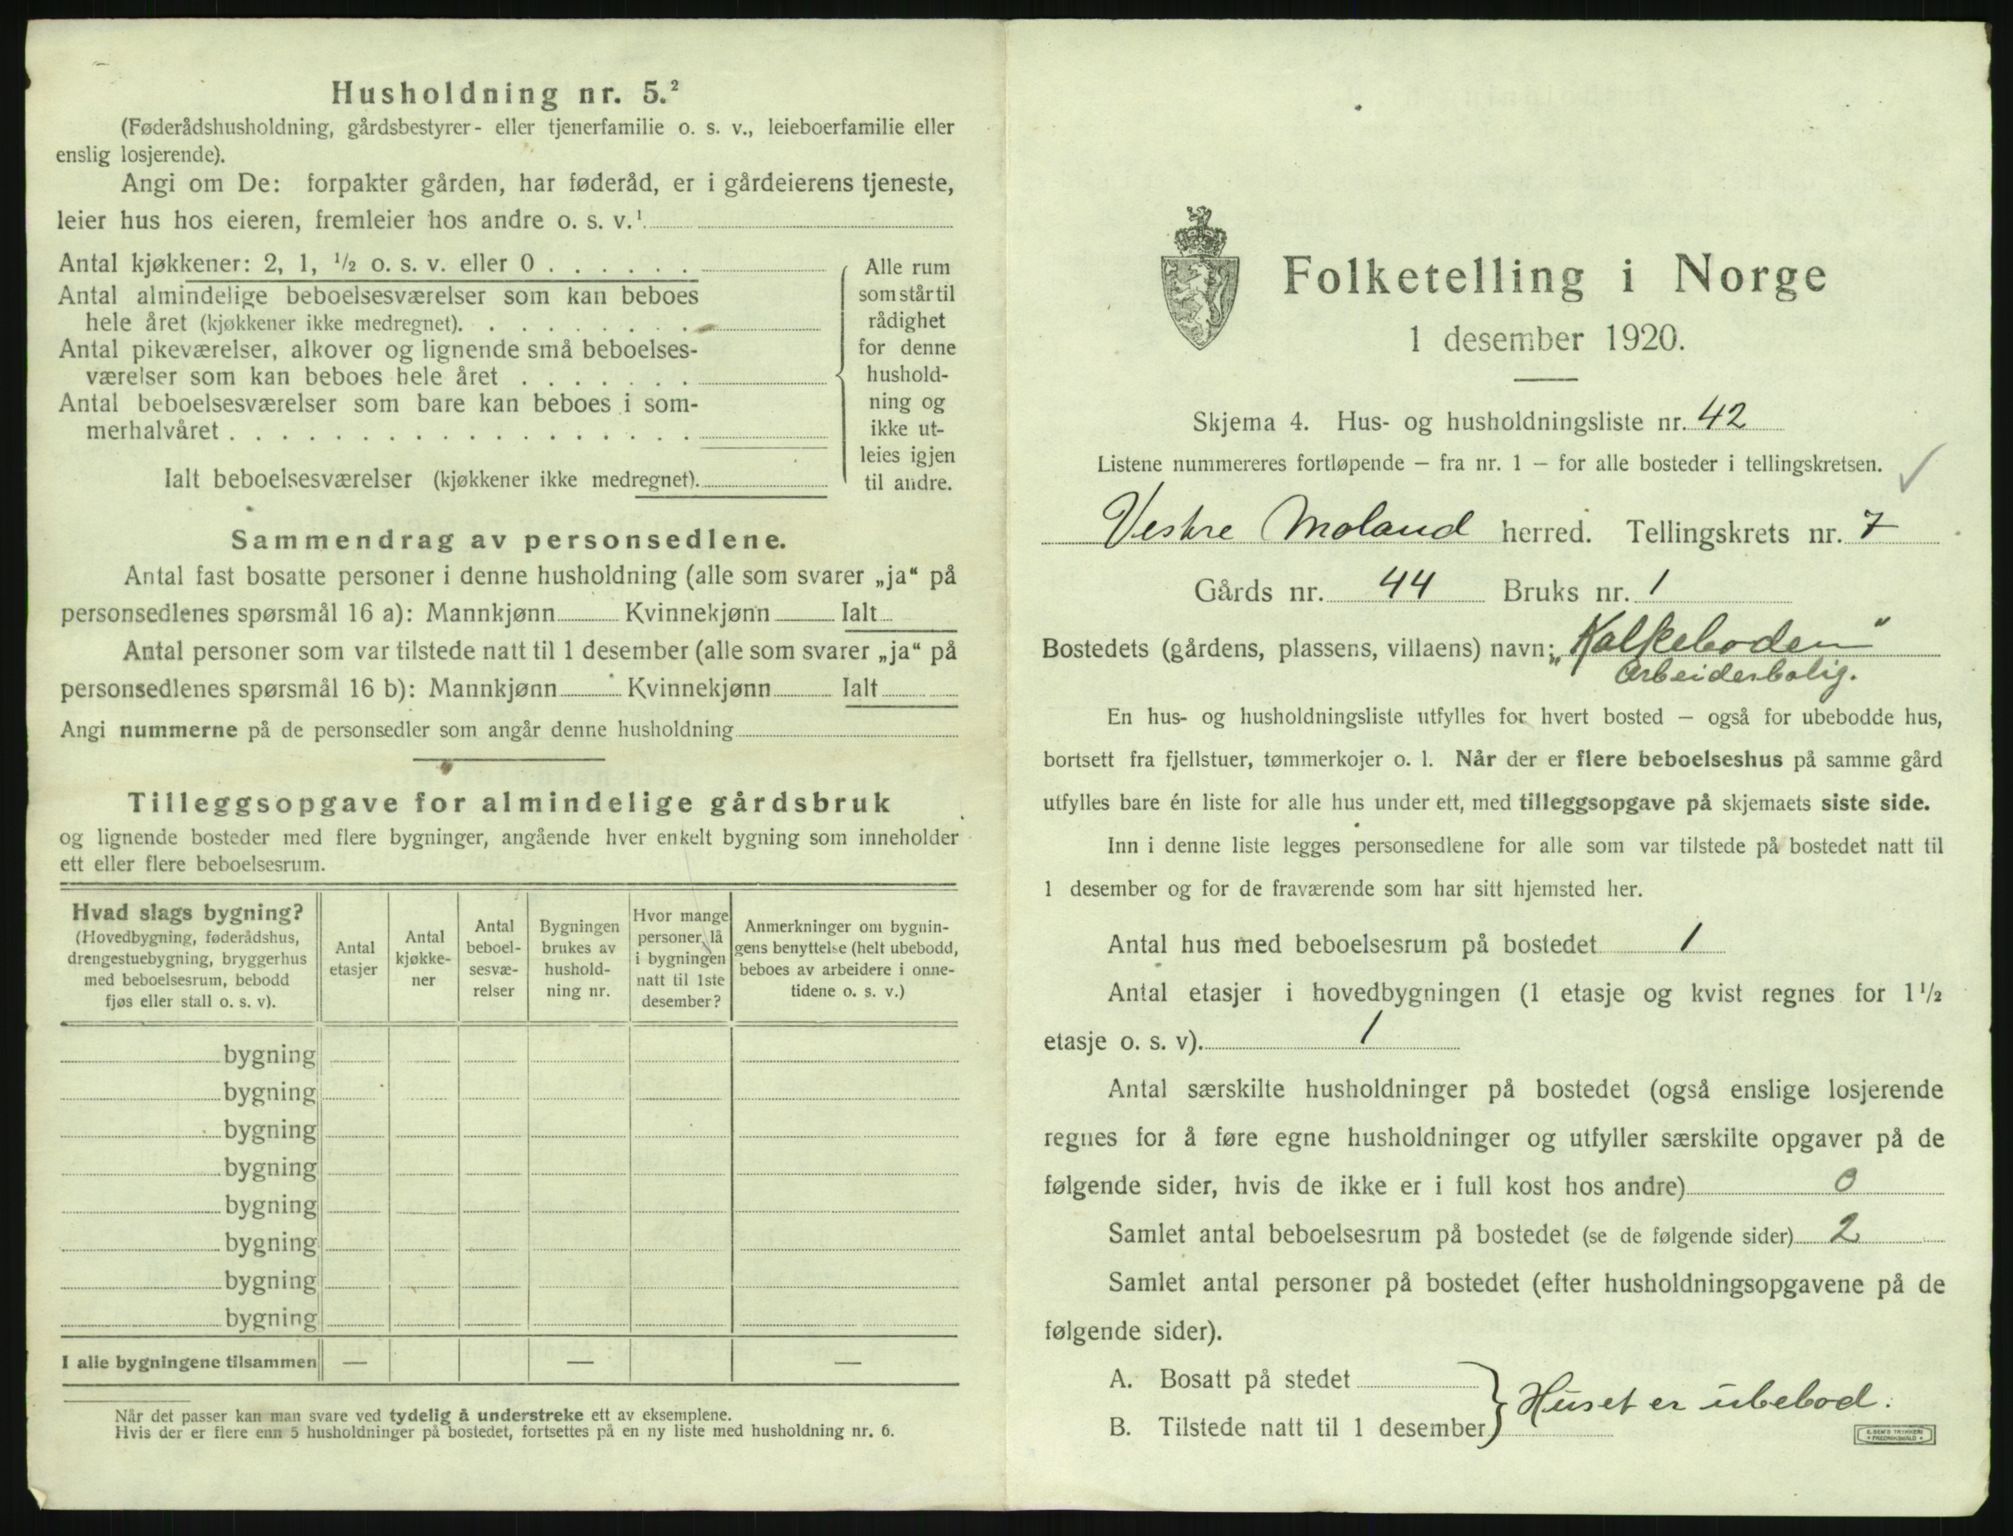 Husholdning nr. 5.²
(Føderådshusholdning, gårdsbestyrer- eller tjenerfamilie o. s. v., leieboerfamilie eller
enslig losjerende).
Angi om De: forpakter gården, har føderåd, er i gårdeierens tjeneste,
leier hus hos eieren, fremleier hos andre o. s. v.¹
Antal kjøkkener: 2, 1, ½ o. s. v. eller 0 . . . . . .
Antal almindelige beboelsesværelser som kan beboes
hele året (kjøkkener ikke medregnet). . . . . . . . .
Antal pikeværelser, alkover og lignende små beboelses-
værelser som kan beboes hele året . . . . . . .
Antal beboelsesværelser som bare kan beboes i som-
merhalvåret . . . . . . . . . . . . . . . . . .
Ialt beboelsesværelser (kjøkkener ikke medregnet).
Alle rum
som står til
rådighet
for denne
hushold-
ning og
ikke ut-
leies igjen
til andre.
Sammendrag av personsedlene.
Antal fast bosatte personer i denne husholdning (alle som svarer „ja“ på
personsedlenes spørsmål 16 a): Mannkjønn Kvinnekjønn Ialt
Antal personer som var tilstede natt til 1 desember (alle som svarer „ja“ på
personsedlenes spørsmål 16 b): Mannkjønn Kvinnekjønn Ialt
Angi nummerne på de personsedler som angår denne husholdning
Tilleggsopgave for almindelige gårdsbruk
og lignende bosteder med flere bygninger, angående hver enkelt bygning som inneholder
ett eller flere beboelsesrum.
Hvad slags bygning?
(Hovedbygning, føderådshus,
drengestuebygning, bryggerhus
med beboelsesrum, bebodd
fjøs eller stall o. s. v).
Antal
etasjer
Antal
kjøkke-
ner
Antal
beboel-
sesvæ-
relser
Bygningen
brukes av
hushold-
ning nr.
Hvor mange
personer lå
i bygningen
natt til 1ste
desember?
Anmerkninger om bygnin-
gens benyttelse (helt ubebodd,
beboes av arbeidere i onne-
tidene o. s. v.)
bygning
bygning
bygning
bygning
bygning
bygning
bygning
bygning
I alle bygningene tilsammen — — —
Når det passer kan man svare ved tydelig å understreke ett av eksemplene.
Hvis der er flere enn 5 husholdninger på bostedet, fortsettes på en ny liste med husholdning nr. 6.
Folketelling i Norge
1 desember 1920.
Skjema 4. Hus- og husholdningsliste nr. 42
Listene nummereres fortløpende – fra nr. 1 – for alle bosteder i tellingskretsen.
Vestre Moland herred. Tellingskrets nr. 7
Gårds nr. 44 Bruks nr. 1
Bostedets (gårdens, plassens, villaens) navn: „Kalkeboden“
Arbeiderbolig.
En hus- og husholdningsliste utfylles for hvert bosted – også for ubebodde hus,
bortsett fra fjellstuer, tømmerkojer o. l. Når der er flere beboelseshus på samme gård
utfylles bare én liste for alle hus under ett, med tilleggsopgave på skjemaets siste side.
Inn i denne liste legges personsedlene for alle som var tilstede på bostedet natt til
1 desember og for de fraværende som har sitt hjemsted her.
Antal hus med beboelsesrum på bostedet 1
Antal etasjer i hovedbygningen (1 etasje og kvist regnes for 1½
etasje o. s. v). 1
Antal særskilte husholdninger på bostedet (også enslige losjerende
regnes for å føre egne husholdninger og utfyller særskilte opgaver på de
følgende sider, hvis de ikke er i full kost hos andre) 0
Samlet antal beboelsesrum på bostedet (se de følgende sider) 2
Samlet antal personer på bostedet (efter husholdningsopgavene på de
følgende sider).
A. Bosatt på stedet
B. Tilstede natt til 1 desember
Huset er ubebod.